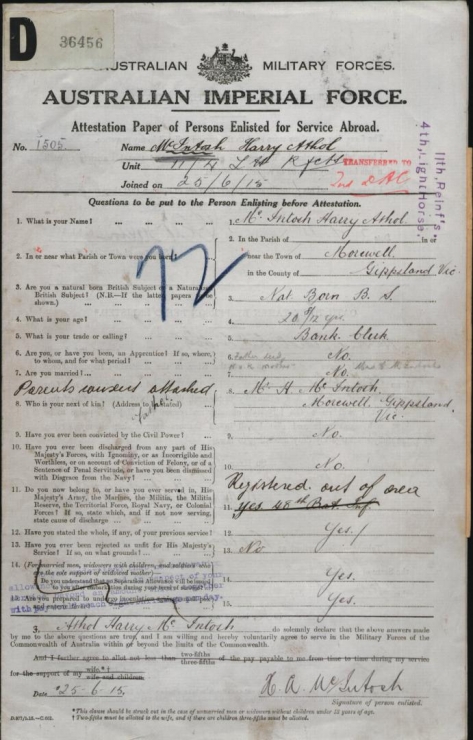 D
36456
AUSTRALIAN MILITARY FORCES.
AUSTRALIAN IMPERIAL FORCE.
Attestation Paper of Persons Enlisted for Service Abroad.
No. 1505 Name McIntosh Harry Athol
Unit 11/4 L.H. Rgfts TRANSFERRED TO
Joined on 25/6/15 2nd D.A.C.
11th Reinf's,
4th Light Horse.
Questions to be put to the Person Enlisting before Attestation.
1. What is your Name? ... 1. McIntosh Harry Athol
2. In or near what Parish or Town were you born? ... 2. In the Parish of in or
near the Town of Morewell
in the County of Gippsland Vic.
3. Are you a natural born British Subject or a Naturalized
British Subject? (N.B.—If the latter, papers to be
shown.) 3. Nat Born B. S.
4. What is your age? ... 4. 20 /12 yrs.
5. What is your trade or calling? ... 5. Bank Clerk
6. Are you, or have you been, an Apprentice? If so, where,
to whom, and for what period? 6. No.
7. Are you married? ... 7. No.
Parents consent attached
8. Who is your next of kin? (Address to be stated) 8. Mr H. McIntosh
Father Morewell Gippsland
Vic.
9. Have you ever been convicted by the Civil Power? ... 9. No.
10. Have you ever been discharged from any part of His
Majesty's Forces, with Ignominy, or as Incorrigible and
Worthless, or on account of Conviction of Felony, or of a
Sentence of Penal Servitude, or have you been dismissed
with Disgrace from the Navy? ... 10. No.
Registered out of area
11. Do you now belong to, or have you ever served in, His
Majesty's Army, the Marines, the Militia, the Militia
Reserve, the Territorial Force, Royal Navy, or Colonial
Forces? If so, state which, and if not now serving,
state cause of discharge 11. yes 48th Batt. Inf
12. Have you stated the whole, if any, of your previous service? 12. Yes/
13. Have you ever been rejected as unfit for His Majesty's
Service? If so, on what grounds? 13. No
14. (For married men, widowers with children, and soldiers who
are the sole support of widowed mother)—
Do you understand that no Separation Allowance will be issued
to you after embarkation during your term of service? 14. Yes.
15. Are you prepared to undergo inoculation against small pox
and enteric fever? 15. Yes.
I, Athol Harry McIntosh do solemnly declare that the above answers made
by me to the above questions are true, and I am willing and hereby voluntarily agree to serve in the Military Forces of the
Commonwealth of Australia within or beyond the limits of the Commonwealth.
*And I further agree to allot not less than two-fifths three-fifths of the pay payable to me from time to time during my service
for the support of my wife.*† wife and children.
Date 25.6.15 H. A. McIntosh
Signature of person enlisted.
*This clause should be struck out in the case of unmarried men or widowers without children under 18 years of age.
†Two-fifths must be allotted to the wife, and if there are children three-fifths must be allotted.